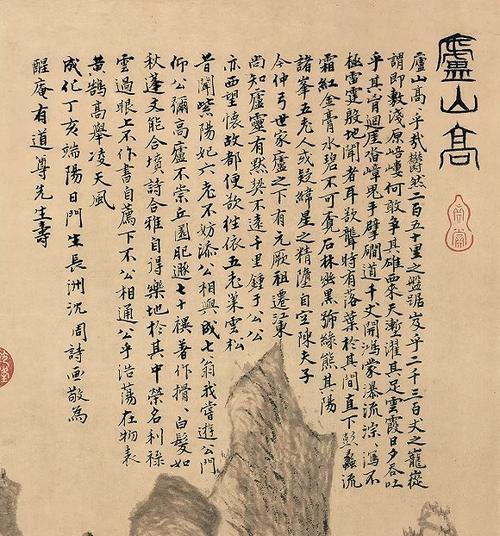 廬山高
廬山高高乎哉鬱然二百五十里之盤踞岌乎二千三百丈之巃嵸
謂即敷淺原培塿何敢爭其雄西來天塹濯其足雲霞旦夕吞吐
乎其胷迴崖沓嶂鬼手擘磵道千丈開鴻蒙瀑流淙淙瀉不
極雷霆殷地聞者耳欲聾時有落葉於其間直下彭蠡流
霜紅金膏水碧不可覔石林幽黑號綠熊其陽
諸峯五老人或疑緯星之精墮自空陳夫子
今仲弓世家廬之下有元厥祖遷江東
尚知廬靈有默契不遠千里鍾于公公
亦西望懷故都便欲往依五老巢雲松
昔聞紫陽妃六老不妨添公相與成七翁我嘗遊公門
仰公彌高廬不崇丘園肥遯七十禩著作搰搰白髮如
秋蓬文能合墳詩合雅自得樂地於其中榮名利祿
雲過眼上不作書自薦下不公相通公乎浩蕩在物表
黃鵠高舉凌天風
成化丁亥端陽日門生長洲沈周詩畫敬為
醒庵有道尊先生壽